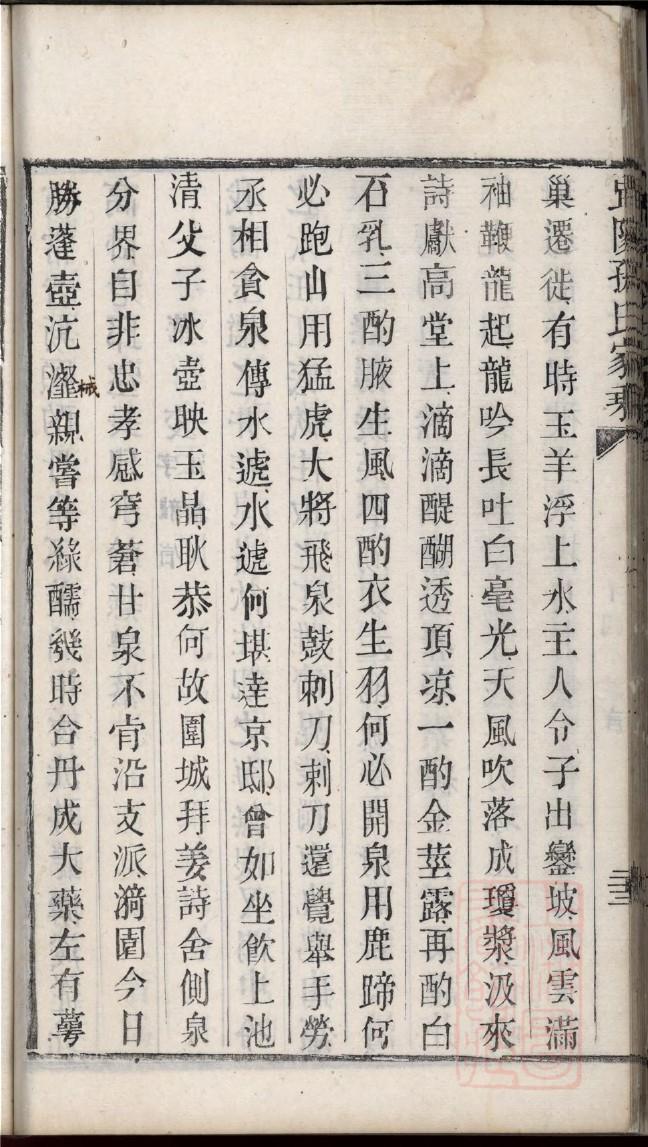 孫氏家乘
巢遷徙有時玉羊浮上水主人令子出鑾坡風雲滿
袖鞭龍起龍吟長吐白毫光天風吹落成瓊漿汲來
詩獻高堂上滴滴醍醐透頂凉一酌金莖露再酌白
石乳三酌腋生風四酌衣生羽何必開泉用鹿蹄何
必跑山用猛虎大將飛泉鼓刺刀刺刀還覺舉手勞
丞相貪泉傳水遞水遞何堪達京邸曾如坐飲上池
清父子冰壺映玉晶耿恭何故圍城拜姜詩舍側泉
分界自非忠孝感穹蒼甘泉不肯沿支派漪園今日
勝蓬壺沆瀣親嘗等綠醽幾時合丹成大藥左有蕚
二十三